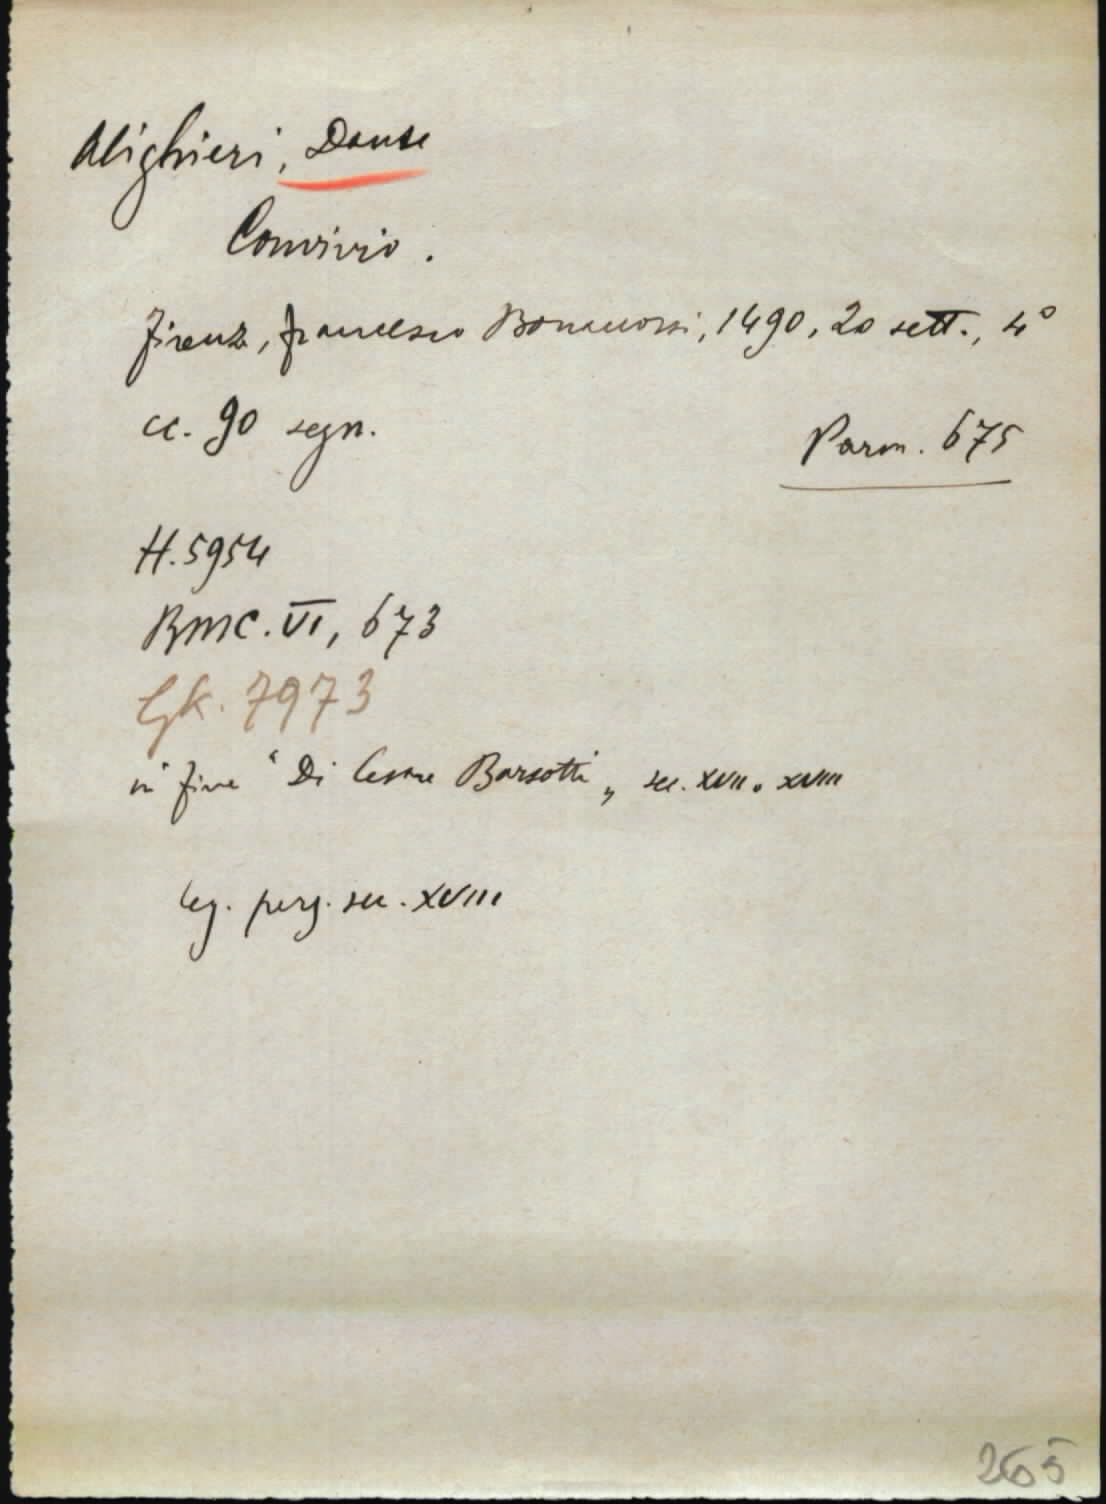 Alighieri, Dante
Convivio.
Firenze, Francesco Bonaccorsi, 1490, 20 sett., 4°
cc. 90 segn.
Parm. 675
H. 5954
BMC. VI, 673
GK. 7973
in fine "Di Cesare Barsotti„ sec. XVII o XVIII
leg. perg. sec. XVIII
265